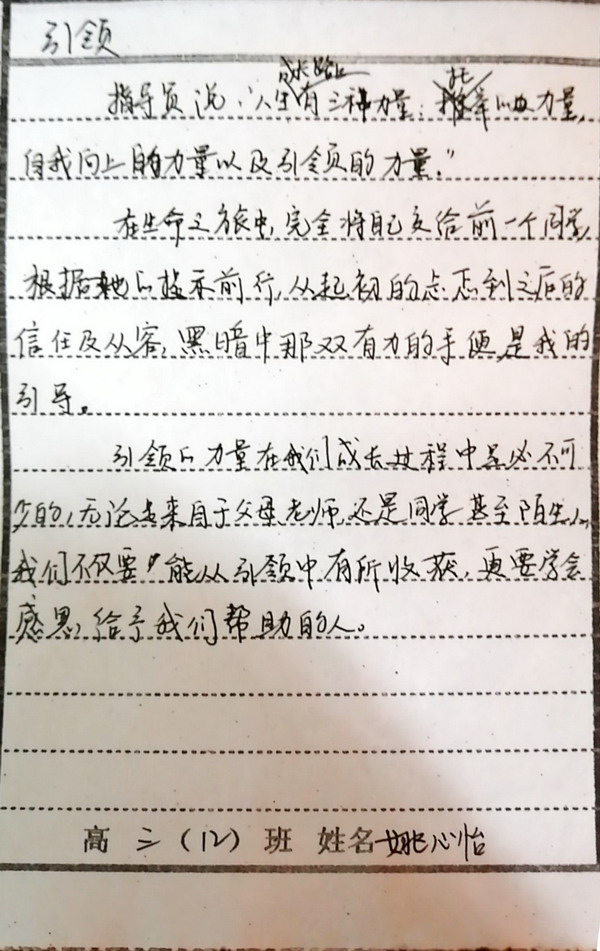 引领
成长路上
指导员说:"人生有三种力量:推举的力量,
自我向上的力量以及引领的力量."
在生命之旅中,完全将自己交给前一个同学,
根据她的指示前行,从起初的忐忑到之后的
信任及从容,黑暗中那双有力的手便是我的
引导。
引领的力量在我们成长过程中是必不可
少的,无论是来自于父母老师,还是同学甚至陌生人,
我们不仅要能从引领中有所收获,更要学会
感恩,给予我们帮助的人。
高三(12)班 姓名姚心怡